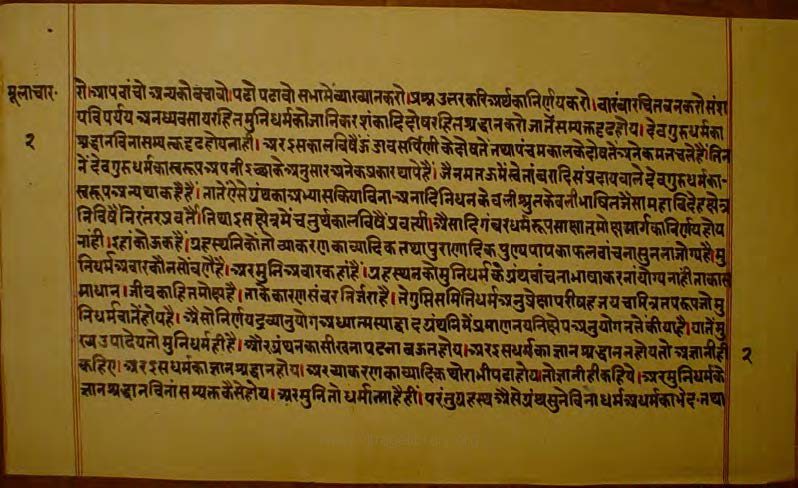 मूलाचार॰
२
रो। आपवांचो अन्यकोवचावो। पढो पढावो सभामेंव्याख्यानकरो। प्रश्न उत्तरकरिअर्थकानिर्णयकरो। वारंवारचिंतवनकरो संश
यविपर्यय अनध्यवसायरहितमुनिधर्मकोजानिकर शंकादिदोषरहितश्रद्धानकरो जातेंसम्यक्तदृढहोय। देवगुरुधर्मका
श्रद्धानविनासम्यक्तदृढहोयनाही। अरइसकालविषैंहुंडावसर्पिणीकेदोषतें तथापंचमकालकेदोषतें अनेकमतचलेहैं। तिन
नें देवगुरुधर्मकास्वरूप अपनीइच्छाके अनुसार अनेकप्रकारथापेहैं। जैनमतमेंस्वेतांबरादिसंप्रदायवाले देवगुरुधर्मका-
स्वरूप अन्यथाकहैहैं। तातें ऐसेग्रंथका अभ्यासकियाविना अनादिनिधनकेवलीश्रुतकेवलीभाषितजैसामहाविदेहक्षेत्र
निविषैंनिरंतरप्रवर्तै। तिथाइसक्षेत्रमेंचतुर्थकालविषैंप्रवर्त्या। ऐसादिगंबरधर्मरूपसाक्षातमोक्षमार्गकानिर्णयहोय
नांही। इहांकोऊकहै। ग्रहस्थनिकोंतो व्याकरणकाव्यादिकतथापुराणादिक पुण्यपापकाफलवांचनासुननाजोग्यहै। मु
निधर्म अवारकौनसोंवणैहै। अरमुनि अवारकहांहैं। ग्रहस्थनकोंमुनिधर्मकेग्रंथवांचनाभाषाकरनांयोग्यनांहीताकास
माधान। जीवकाहितमोक्षहै। ताकेकारणसंवरनिर्जराहै। तेगुप्तिसमितिधर्मअनुप्रेक्षापरीषहजयचारित्रतपरूपजोमु
निधर्मतातेंहोयहै। ऐसोनिर्णयद्रव्यानुयोग अध्यात्मस्याद्वादग्रंथनिमेंप्रमाणनयनिक्षेपअनुयोगनतेंकीयाहै। यातेंमु
ख्यउपादेयतोमुनिधर्महीहै। औरग्रंथनकासीखनापढनाबऊतहोय। अरइसधर्मकाज्ञानश्रद्धाननहोयतो अज्ञानीही
कहिए। अरइसधर्मकाज्ञानश्रद्धानहोय। अरव्याकरणकाव्यादिकथोराभीपढाहोय। तोज्ञानीहीकहिये। अरमुनिधर्मके
ज्ञानश्रद्धानविनांसम्यक्तकैसेहोय। अरमुनितोधर्मात्माहैहीं। परंतुग्रहस्थ ऐसेग्रंथसुनेविनाधर्मअधर्मकाभेद॰तथा
२